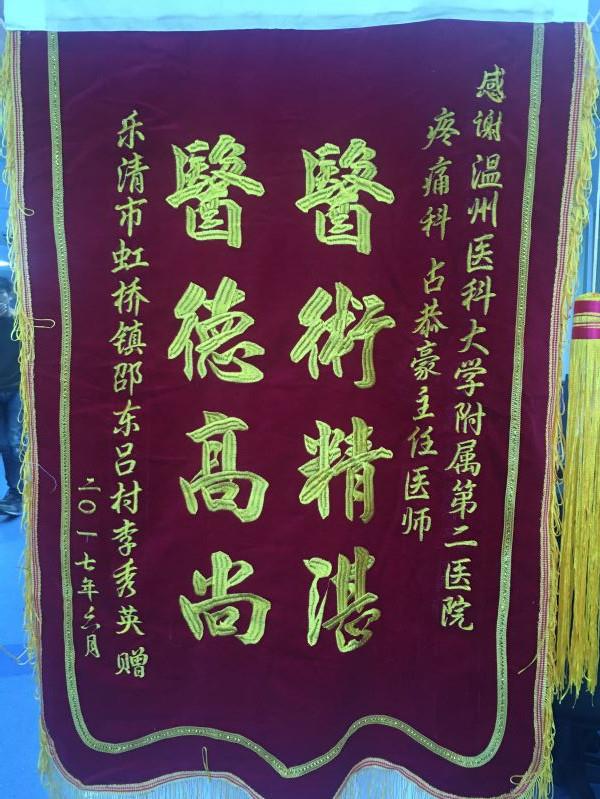 感谢温州医科大学附属第二医院
疼痛科占恭豪主任医师
醫術精湛
醫德高尚
乐清市虹桥镇邵东吕村李秀英赠
二〇一七年六月